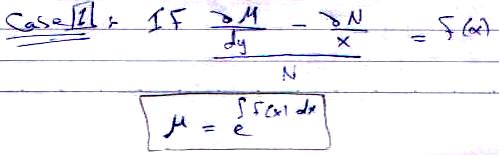 Case [1] : IF (∂M/dy - ∂N/x) / N = f(x)
μ = e^∫f(x) dx